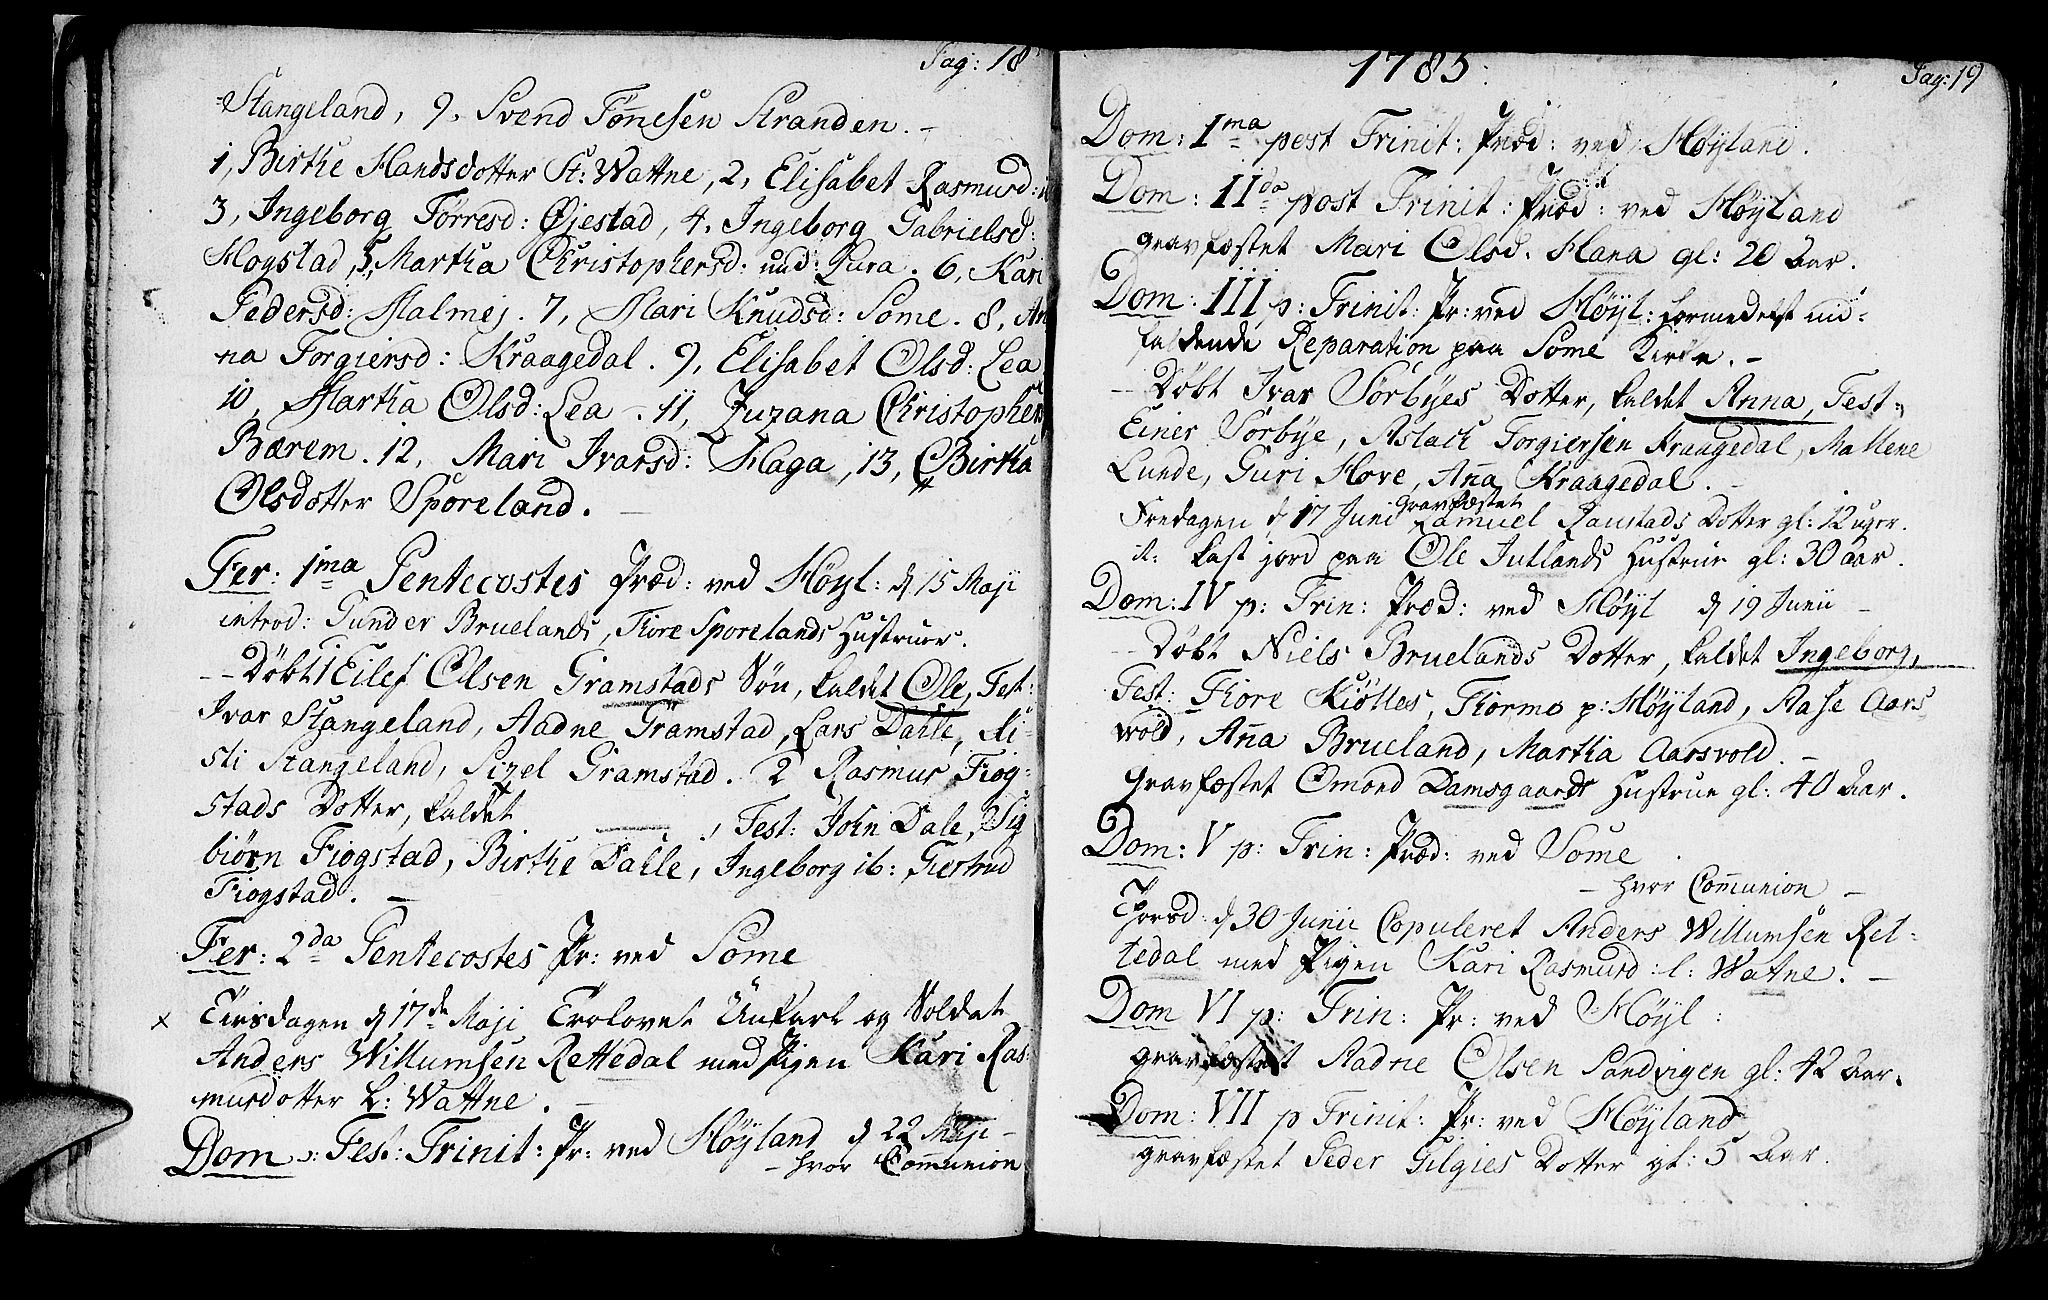 Pag: 18
Stangeland, 9. Svend Tönesen Stranden. -
1, Birthe Handsdotter St: Wattne, 2, Elisabet Rasmusd:
3, Ingeborg Törresd: Øjestad, 4. Ingeborg Gabrielsd:
Hogstad, 5, Martha Christophersd: und: Lura. 6, Kari
Pedersd: Malmej. 7, Mari Knudsd: Some. 8, An
na Torgiersd: Kraagedal. 9, Elisabet Olsd: Lea
10, Martha Olsd: Lea - 11, Zuzana Christophers
Bærem. 12, Mari Ivarsd: Haga, 13, Birtha
Olsdotter Sporeland. -
Fer: 1ma Pentecostes Præd: ved Höyl: d 15 Maji
introd: Gunder Bruelands, Tore Sporelands Hustruer.
-- Döbt 1 Eilef Olsen Gramstads Sön, kaldet Ole, Test:
Ivar Stangeland, Aadne Gramstad, Lars Dalle, Ki-
sti Stangeland, Sizel Gramstad. 2 Rasmus Fiog-
stads Dotter, kaldet , Test: John Dale, Sig
biörn Fiogstad, Birthe Dalle, Ingeborg ib: Giertrud
Fiogstad. -
Fer: 2da Pentecostes Pr: ved Some
x Tirsdagen d 17de Maji Trolovet Unkarl og Soldat
Anders Willumsen Rettedal med Pigen Kari Ras-
musdotter L: Wattne. -
Dom: Fest: Trinit: Pr: ved Höyland d 22 Maji -
- hvor Communion
1785:
Pag: 19
Dom: Ima post Trinit: Præd: ved Höyland.
Dom: IIda post Trinit: Præd: ved Höyland
gravfæstet Mari Olsd. Hana gl: 20 Aar.
Dom: III p: Trinit: Pr: ved Höyl: formedelst ind-
faldende Reparation paa Some Kirke. -
- Döbt Ivar Sörbyes Dotter, kaldet Anna, Test:
Einer Sörbye, Aslach Torgiersen Kraagedal, Mallene
Lunde, Guri Hove, Anna Kraagedal. -
Fredagen d 17 Juni gravfæstet Samuel Raustads Dotter gl: 12 uger.
it: kast jord paa Ole Jutlands Hustrue gl: 30 Aar.
Dom: IV p: Trin: Præd: ved Höyl d 19 Junii -
- Döbt Niels Bruelands Dotter, kaldet Ingeborg,
Test: Tore Kiölles, Tormo p: Höyland, Aase Aars-
wold, Anna Brueland, Martha Aarsvold. -
gravfæstet Omond Damsgaards Hustrue gl: 40 Aar.
Dom: V p: Trin: Præd: ved Some
- hvor Communion -
Torsd: d 30 Junii Copuleret Anders Willumsen Ret-
tedal med Pigen Kari Rasmusd: l: Watne. -
Dom VI p: Trin: Pr: ved Höyl:
gravfæstet Aadne Olsen Sandvigen gl: 42 Aar.
Dom: VII p Trinit: Pr: ved Höyland
gravfæstet Peder Gilgies Dotter gl: 5 Aar.